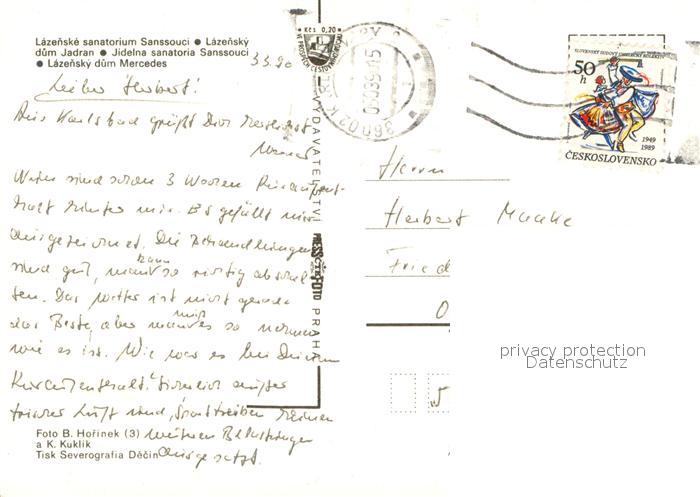 Lázeňské sanatorium Sanssouci ● Lázeňský
dům Jadran ● Jídelna sanatoria Sanssouci
● Lázeňský dům Mercedes
3.5.90
Lieber Herbert!
Aus Karlsbad grüßt Dich herzlichst
Werner
3 Wochen
hinter mir. Es gefällt mir
ausgezeichnet. Die Behandlungen
sind gut, man kann so richtig abschal
ten. Das Wetter ist nicht gerade
das Beste, aber man muß es so nehmen
wie es ist. Wie war es bei Deinem
Kuraufenthalt? Sicherlich außer
frischer Luft und Sporttreiben keinen
weiteren Belastungen
ausgesetzt.
Foto B. Hořínek (3)
a K. Kuklík
Tisk Severografia Děčín
VYDAVATELSTVÍ PRESSFOTO PRAHA
Kčs 0,20
SLOVENSKÝ ĽUDOVÝ UMELECKÝ KOLEKTÍV
50 h
1949
1989
ČESKOSLOVENSKO
Herrn
Herbert
Fried
O
privacy protection
Datenschutz